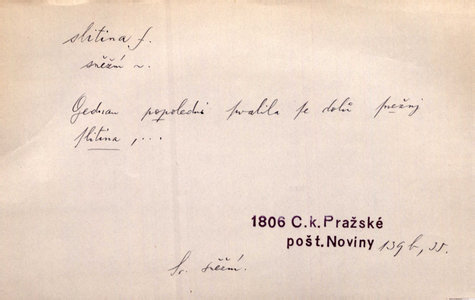 slitina f.
sněžní ~.
Gednau popolední swalila se dolů sněžnj
slitina , . . .
1806 C.k.Pražské
pošt.Noviny 139b, 35.
Sv. sněžní.